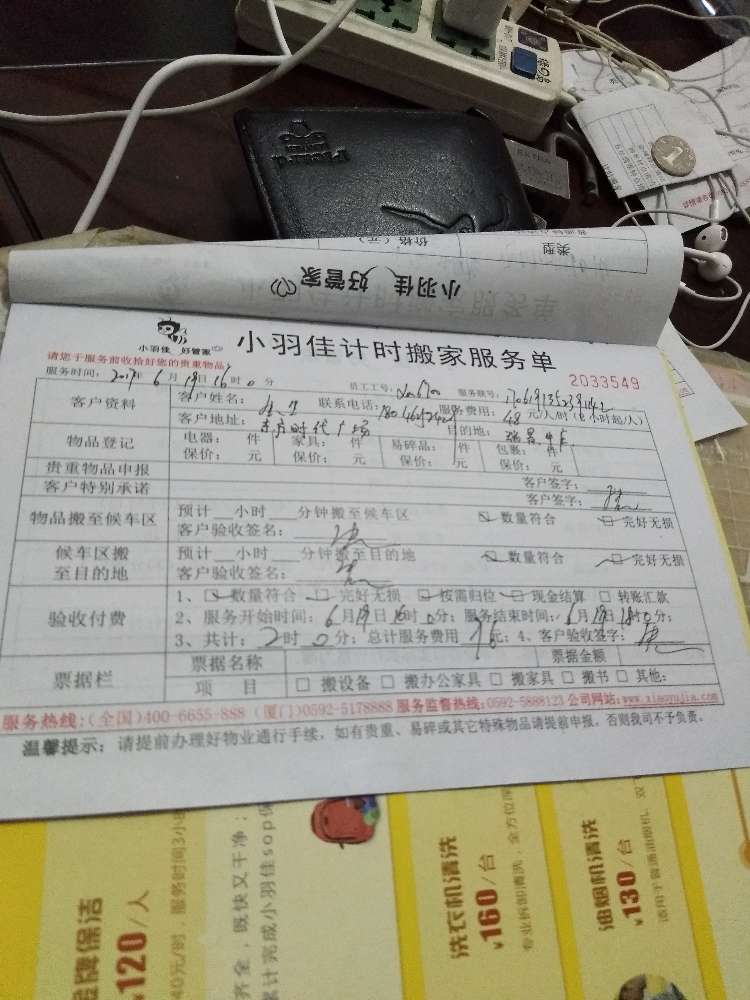 Pickard
类型
价格（元）
小羽佳 好管家
小羽佳 好管家
小羽佳计时搬家服务单
2033549
请您于服务前收拾好您的贵重物品
服务时间：2017年 6 月 19 日 16 时 0 分 员工工号： 服务账号：
客户资料
客户姓名： 联系电话： 服务费用：48 元/人/时（2小时起/人）
客户地址：东方时代广场 目的地：
物品登记
电器： 件 家具： 件 易碎品： 件 包装： 件
保价： 元 保价： 元 保价： 元 保价： 元
贵重物品申报 客户签字：
客户特别承诺 客户签字：
物品搬至候车区
预计 小时 分钟搬至候车区 数量符合 完好无损
客户验收签名：
候车区搬至目的地
预计 小时 分钟搬至目的地 数量符合 完好无损
客户验收签名：
验收付费
1、 数量符合 完好无损 按需归位 现金结算 转账汇款
2、服务开始时间：6月19日16时0分；服务结束时间：6月19日18时0分；
3、共计：2时 0分；总计服务费用 元；4、客户验收签字：
票据栏
票据名称 票据金额
项 目 搬设备 搬办公家具 搬家具 搬书 其他：
服务热线：(全国)400-6655-888 (厦门)0592-5178888 服务监督热线：0592-5888123 公司网站：www.xiaoyujia.com
温馨提示：请提前办理好物业通行手续，如有贵重、易碎或其它特殊物品请提前申报，否则我司不予负责。
品牌保洁
¥120/人
40元/时，服务时间3小
齐全，既快又干净；
累计完成小羽佳sop保
洗衣机清洗
¥160/台
专业拆卸清洗，全方位深
油烟机清洗
¥130/台
适用于普通油烟机、双